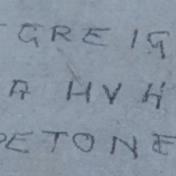 GREIG
A HVH
PETONE